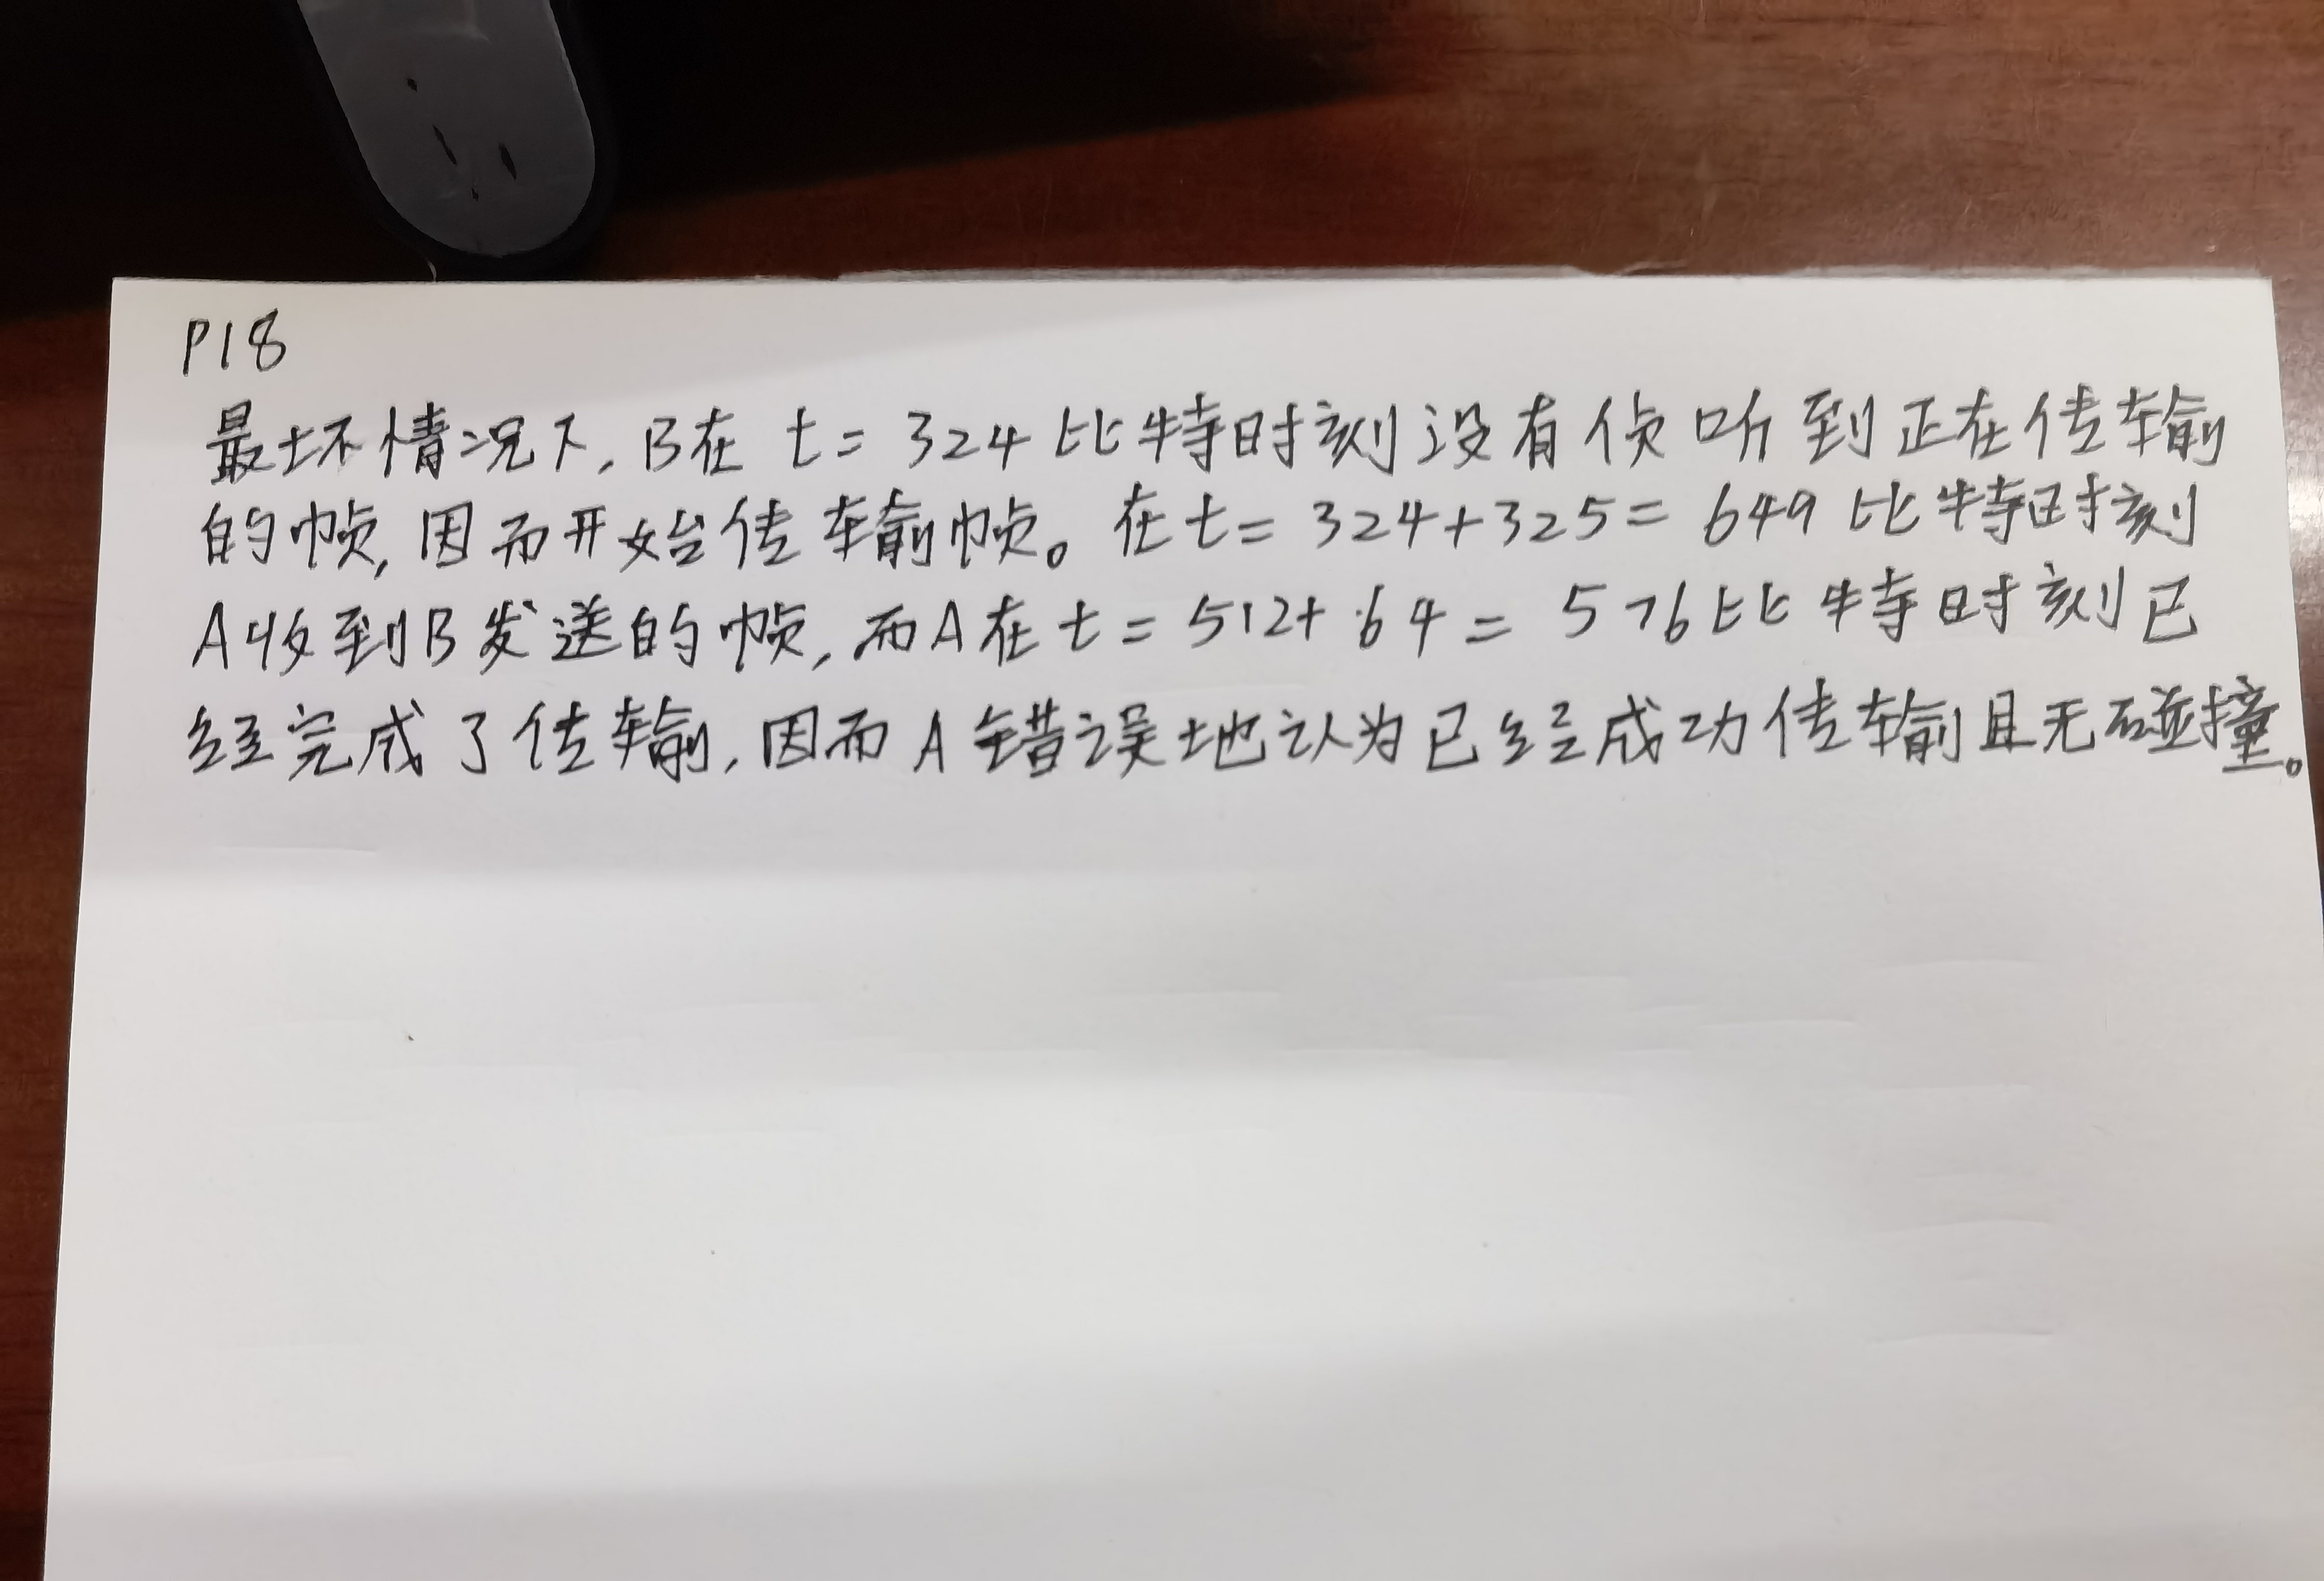 P18
最坏情况下,B在 t= 324 比特时刻没有侦听到正在传输
的帧,因而开始传输帧。在t= 324+325= 649 比特时刻
A收到B发送的帧,而A在t= 512+64= 576比特时刻已
经完成了传输,因而A错误地认为已经成功传输且无碰撞。